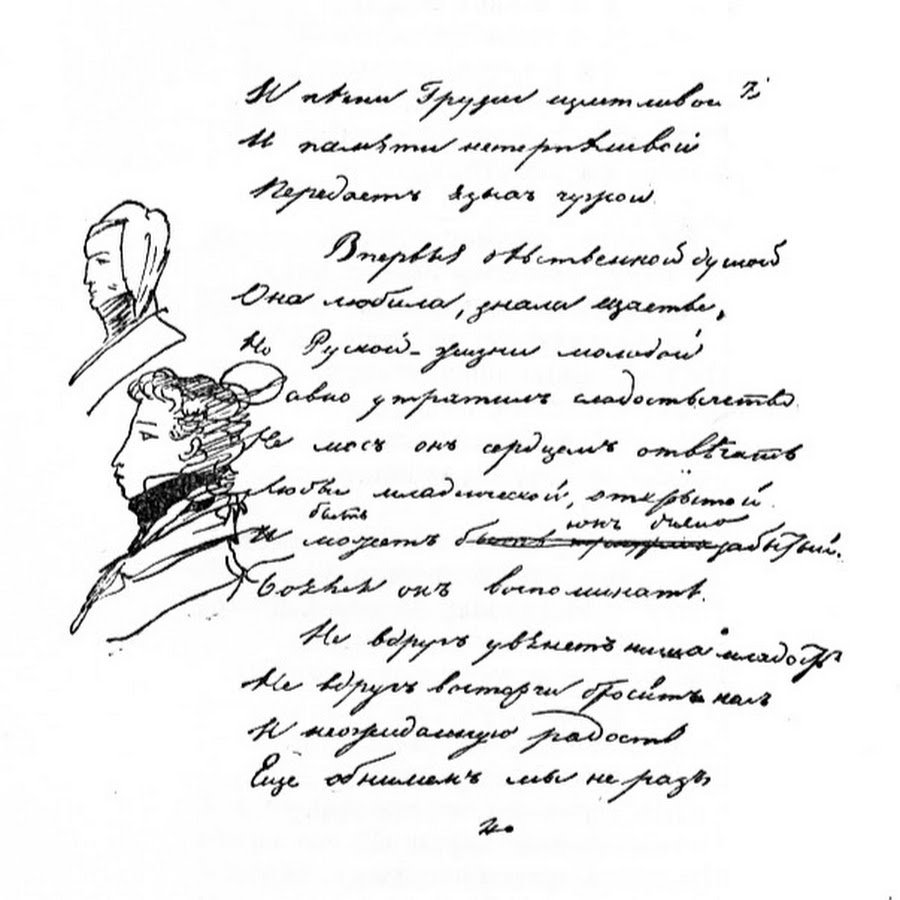 И пѣсни Грузіи щастливой 7)
И памяти нетерпѣливой
Передаетъ языкъ чужой.
Впервыя дѣвственной душой
Она любила, знала щастье,
Но Руской жизни молодой
Давно утратилъ сладострастье
Не могъ онъ сердцемъ отвѣчать
Любви младенческой, открытой.
быть онъ
И можетъ быть забытый.
Боялся онъ воспоминать.
Не вдругъ увянетъ наша младость
Не вдругъ восторги бросятъ насъ
И неожиданную радость
Еще обнимемъ мы не разъ